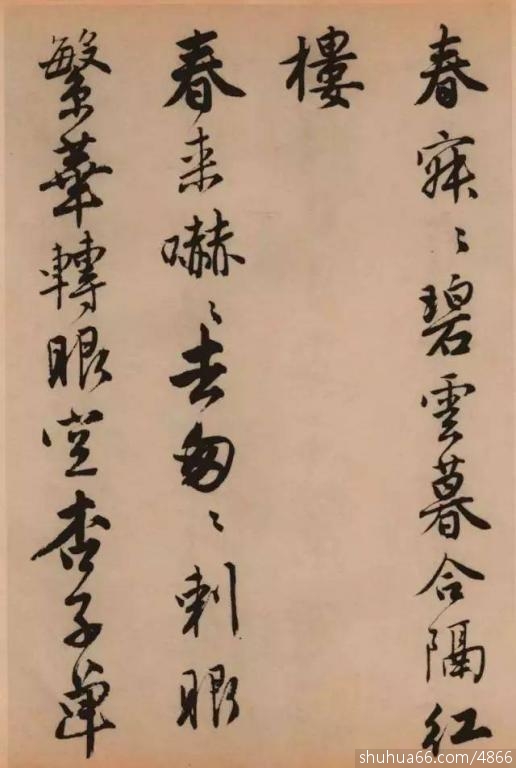 春寂〻碧雲暮合隔紅
樓
春来嚇〻去匆〻刺眼
繁華轉眼空杏子單
shuhua66.com/4866